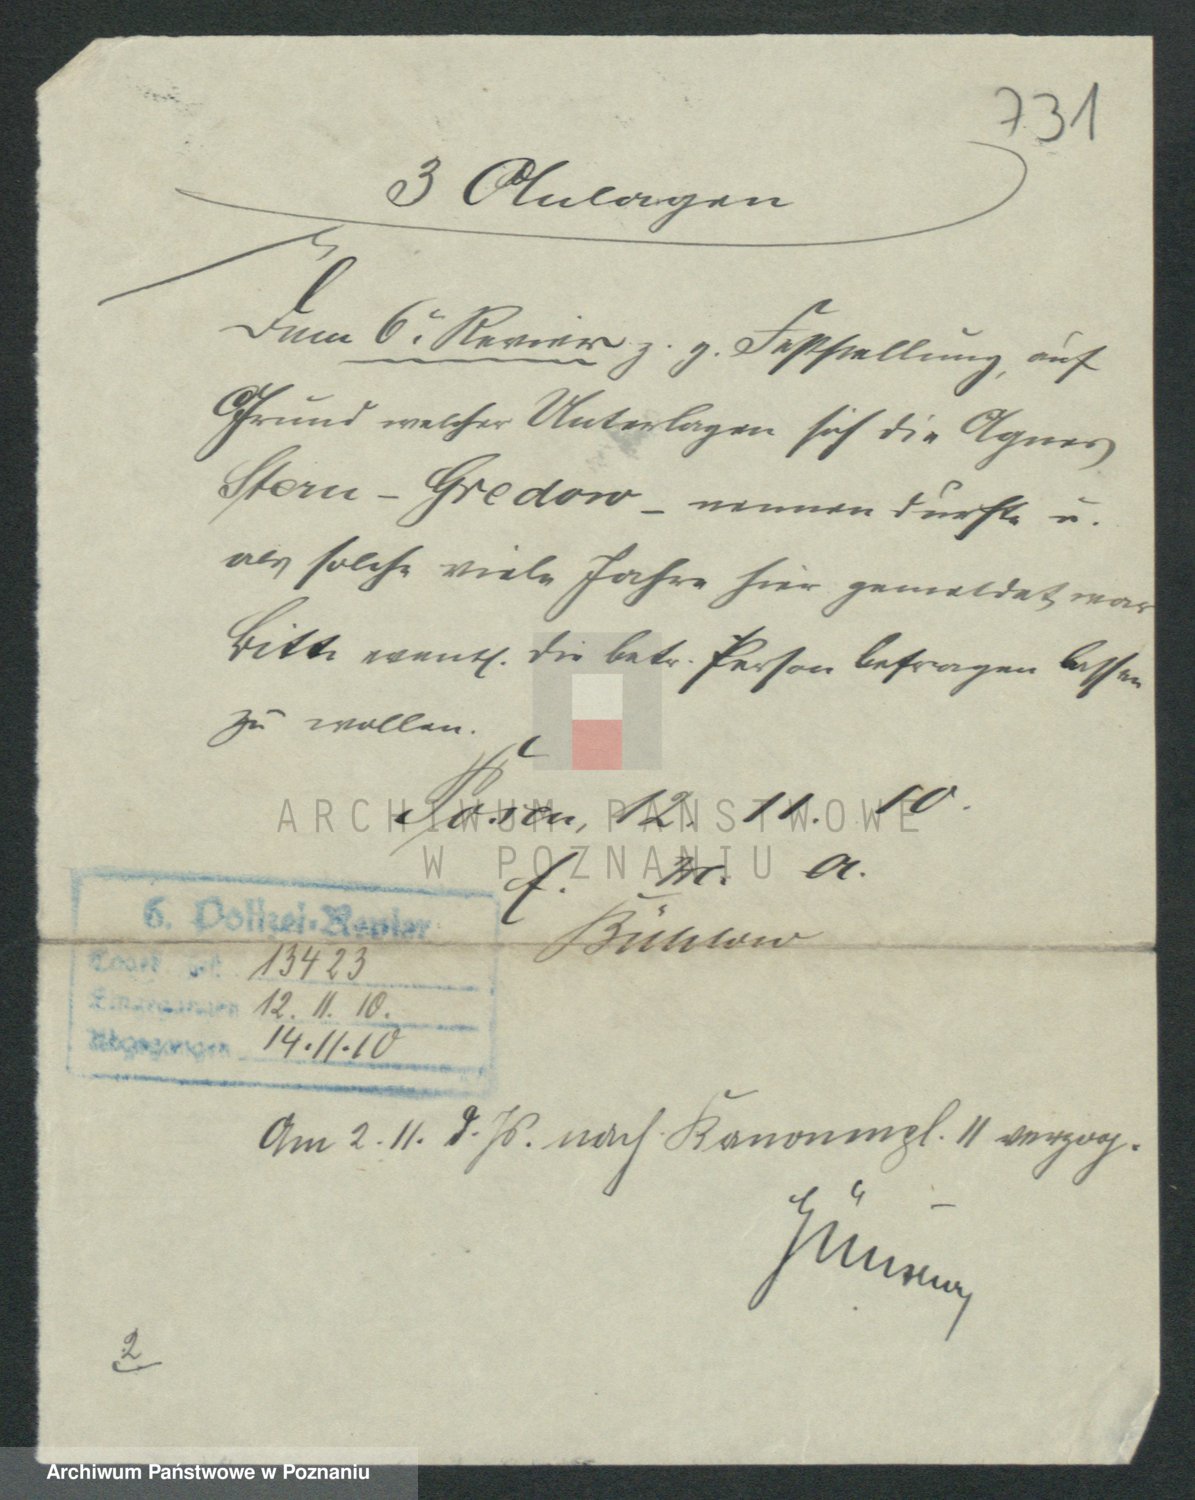 731
3 Anlagen
Dem 6. Revier z. g. Feststellung, auf
Grund welcher Unterlagen sich die Agnes
Stern - Gredow - nennen durfte u.
als solche viele Jahre hier gemeldet war
Bitte eventl. die betr. Person befragen lassen
zu wollen.
Posen, 12. 11. 10.
E. M. A.
ARCHIWUM PAŃSTWOWE
W POZNANIU
6. Polizei-Revier
13423
Eingegangen 12. 11. 10.
Abgegangen 14.11.10
Am 2. 11. d. Js. nach Kanonenpl. 11 verzog.
2
Archiwum Państwowe w Poznaniu